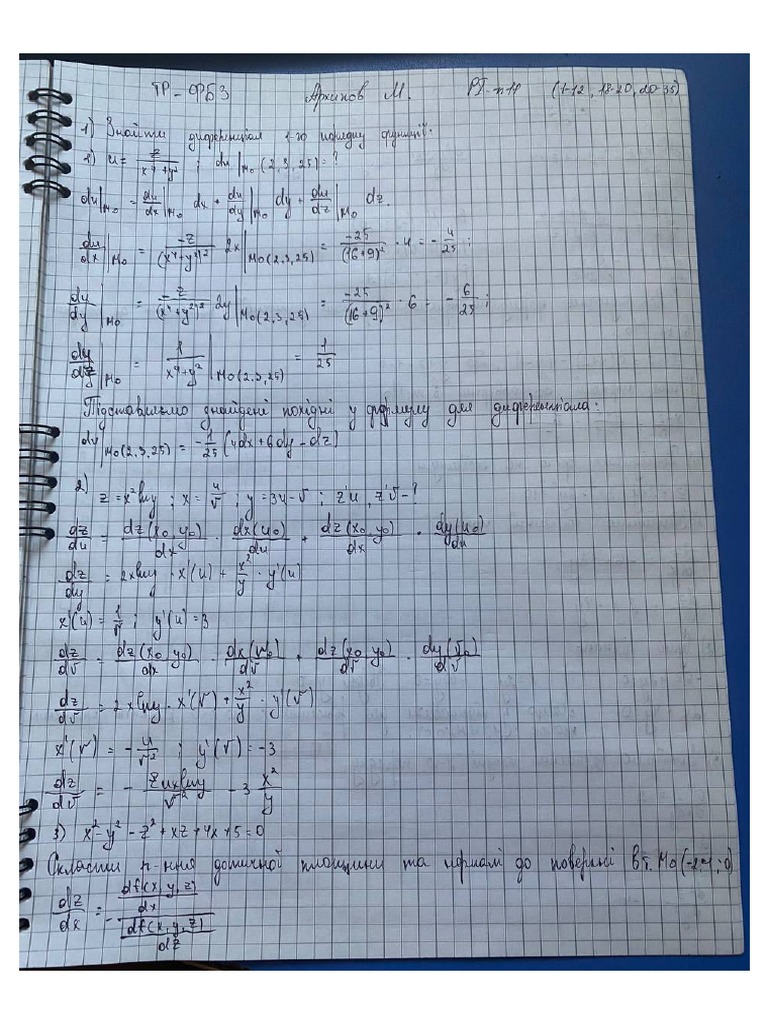 ТР-ФБЗ Архипов М. РІ-п11 (1-12, 18-20, 20-35)
1) Знайти диференціал 1-го порядку функції:
8) u = z/(x⁴+y²) ; du|M₀(2,3,25) = ?
du|M₀ = du/dx|M₀ dx + du/dy|M₀ dy + du/dz|M₀ dz.
du/dx|M₀ = -z/(x⁴+y²)² 2x|M₀(2,3,25) = -25/(16+9)² · 4 = -4/25 ;
du/dy|M₀ = -z/(x⁴+y²)² 2y|M₀(2,3,25) = -25/(16+9)² · 6 = -6/25 ;
du/dz|M₀ = 1/(x⁴+y²)|M₀(2,3,25) = 1/25
Підставляємо знайдені похідні у формулу для диференціала:
du|M₀(2,3,25) = -1/25 (4dx+6dy-dz)
2) z = x² ln y ; x = u/v ; y = 3u-v ; z'u, z'v - ?
dz/du = dz(x₀,y₀)/dx · dx(u₀)/du + dz(x₀,y₀)/dx · dy(u₀)/du
dz/dy = 2x ln y · x'(u) + x²/y · y'(u)
x'(u) = 1/v ; y'(u) = 3
dz/dv = dz(x₀,y₀)/dx · dx(v₀)/dv + dz(x₀,y₀)/dv · dy(v₀)/dv
dz/dv = 2x ln y · x'(v) + x²/y · y'(v)
x'(v) = -u/v² ; y'(v) = -3
dz/dv = - 2ux ln y/v² - 3 x²/y
3) x²-y²-z²+xz+4x+5=0
Скласти р-ння дотичної площини та нормалі до поверхні в т. M₀(-2,1;0)
dz/dx = - (df(x,y,z)/dx)/(df(x,y,z)/dz)